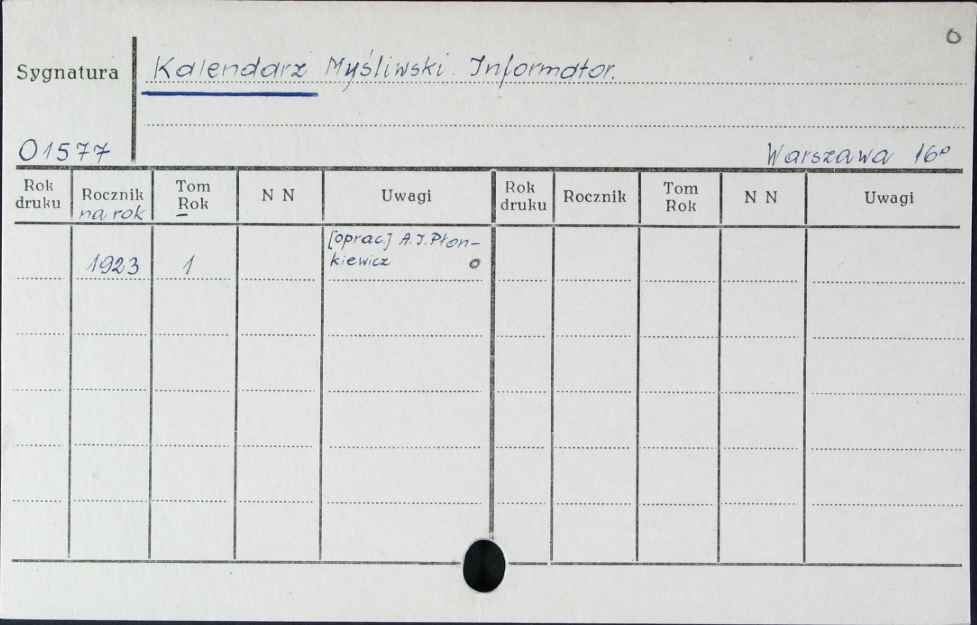 O
Sygnatura Kalendarz Myśliwski. Informator.
O1577 Warszawa 16°
Rok druku Rocznik na rok Tom Rok N N Uwagi Rok druku Rocznik Tom Rok N N Uwagi
[oprac.] A.J.Płon-
1923 1 kiewicz o